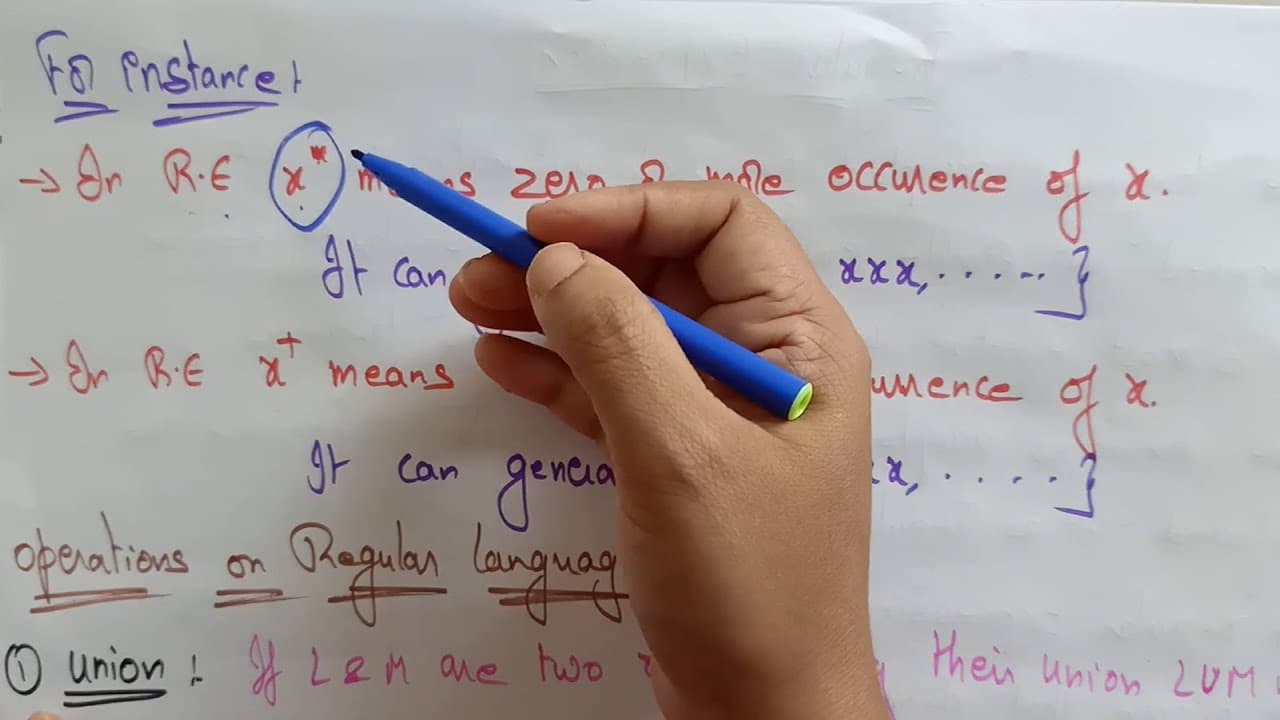 For instance:
→ In R.E x* means zero or more occurence of x.
It can xxx, ..... }
→ In R.E x⁺ means urrence of x.
It can genera x, ..... }
operations on Regular languag
① union : If L & M are two their union LUM